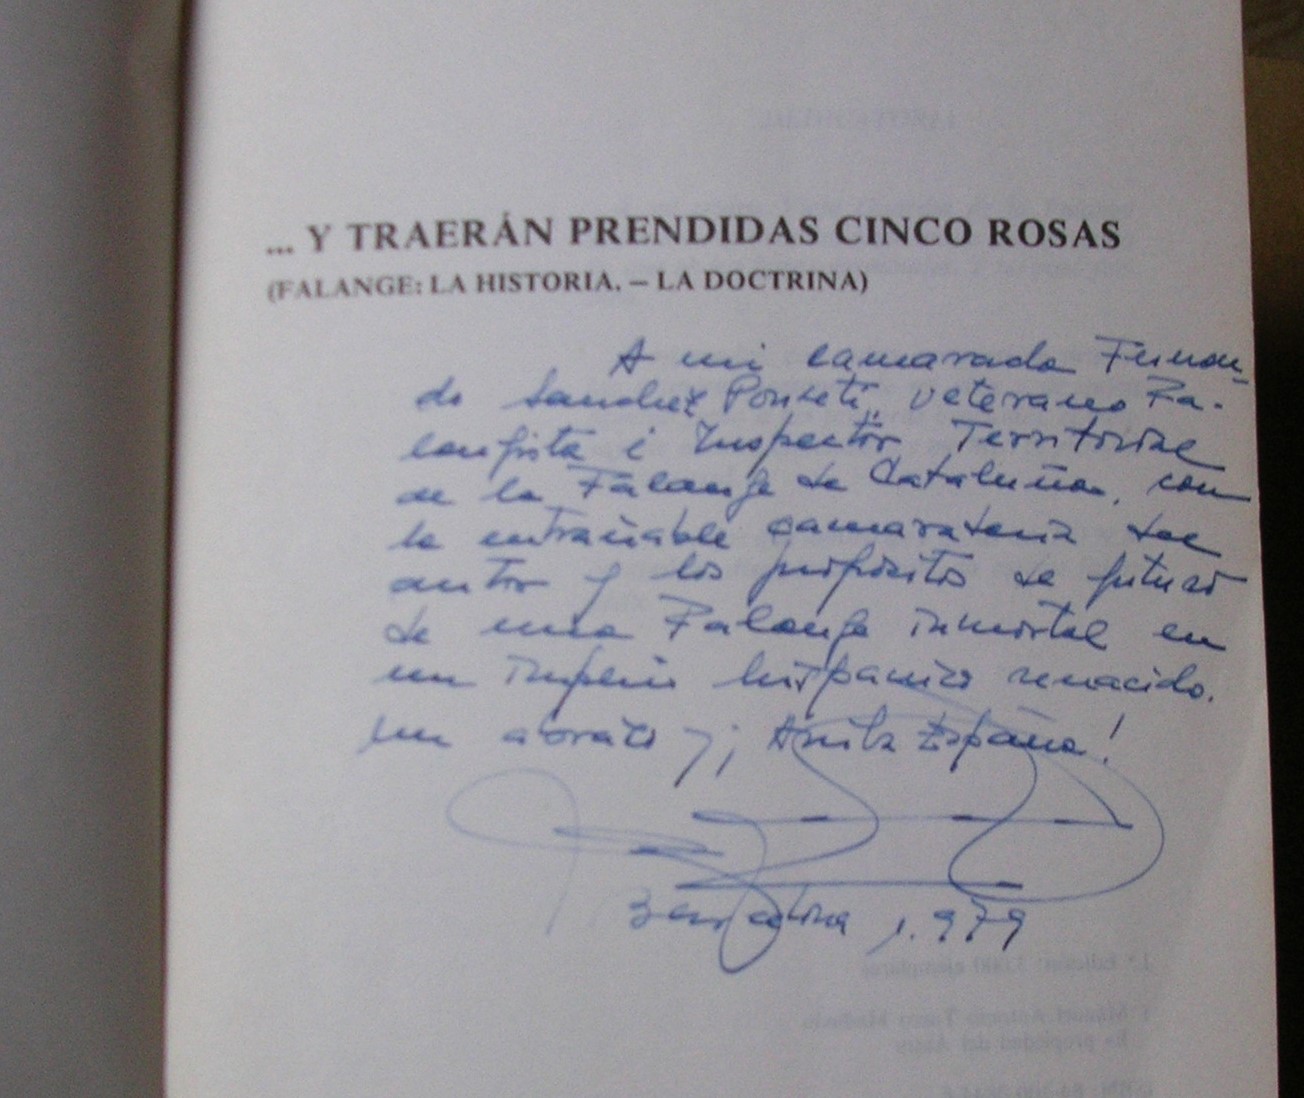 ... Y TRAERÁN PRENDIDAS CINCO ROSAS
(FALANGE: LA HISTORIA. – LA DOCTRINA)
A mi camarada Fernan-
do Sanchez Ponseti, veterano Fa-
langista i Inspector Territorial
de la Falange de Cataluña, con
la entrañable camaradería del
autor y los propósitos de futuro
de una Falange inmortal en
un Imperio hispanico renacido.
un abrazo y ¡Arriba España!
Barcelona 1.979